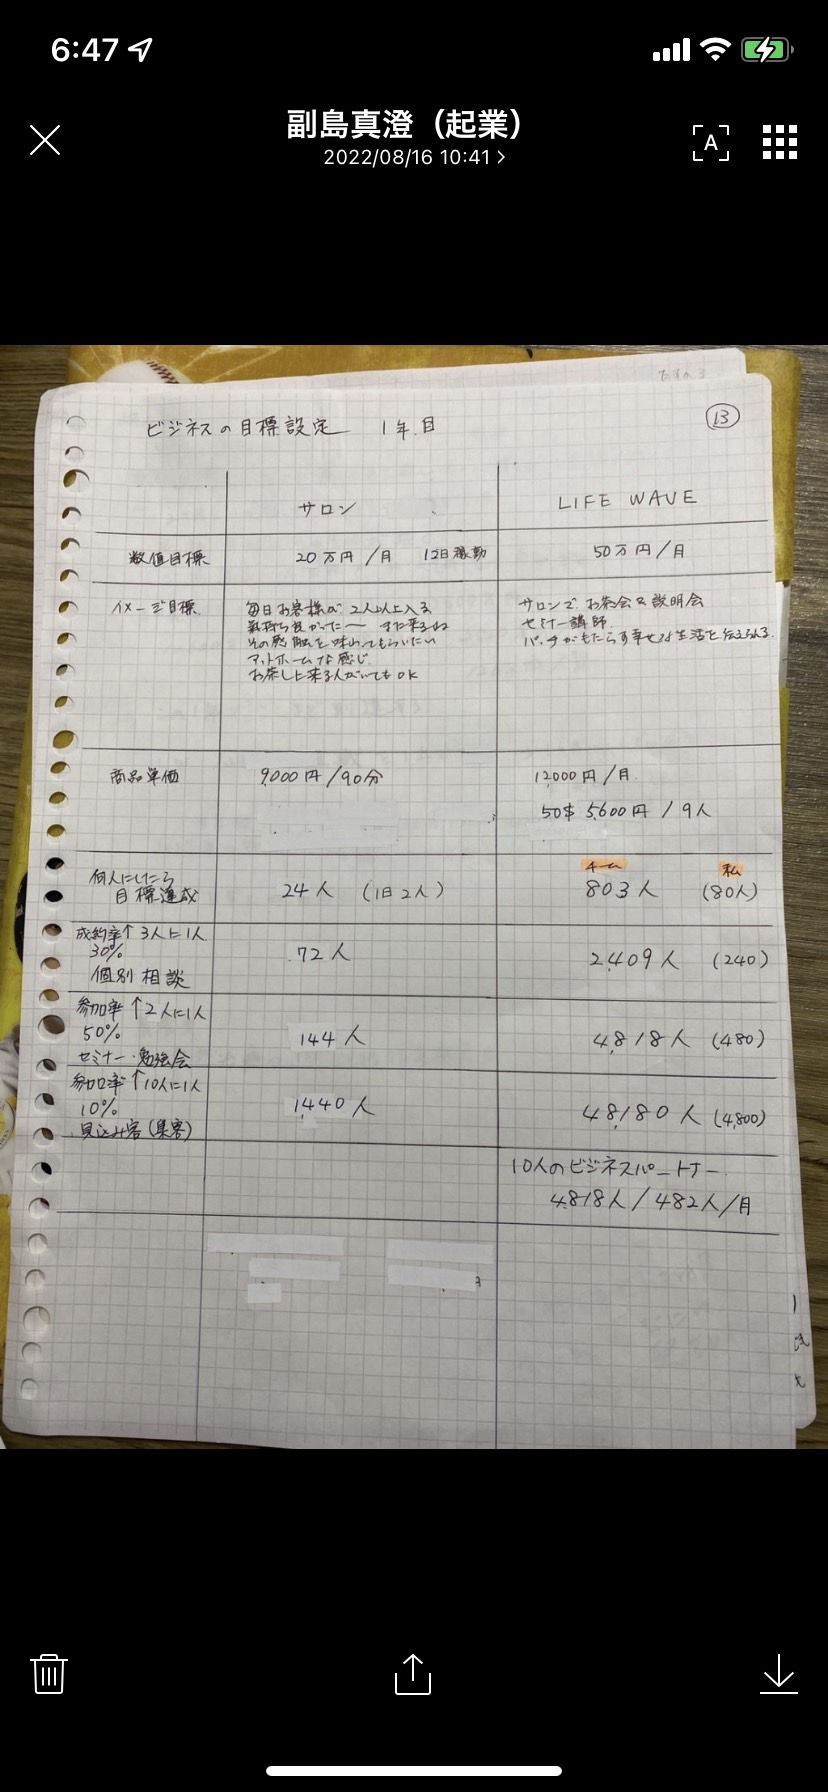 6:47
副島真澄（起業）
2022/08/16 10:41
A
13
ビジネスの目標設定 1年目
サロン
LIFE WAVE
数値目標
20万円/月 12日稼動
50万円/月
イメージ目標
毎日お客様が2人以上入る
気持ち良かった〜 また来るね
その感触を味わってもらいたい
アットホームな感じ
お茶しに来る人がいてもOK
サロンでお茶会&説明会
セミナー講師
パッチがもたらす幸せな生活を伝えられる
商品単価
9,000円/90分
12,000円/月
50$ 5,600円/9人
何人にしたら
目標達成
24人 (1日2人)
チーム 私
803人 (80人)
成約率↑3人に1人
30%
個別相談
72人
2,409人 (240)
参加率↑2人に1人
50%
セミナー・勉強会
144人
4,818人 (480)
参加率↑10人に1人
10%
見込み客(集客)
1,440人
48,180人 (4,800)
10人のビジネスパートナー
4,818人/482人/月